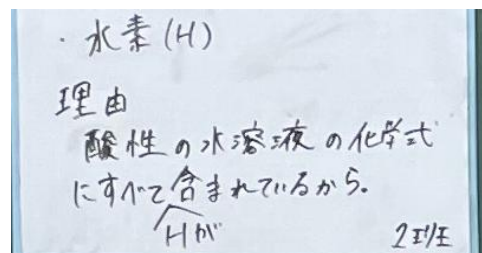 ・水素(H)
理由
酸性の水溶液の化学式
にすべて含まれているから。
Hが
2班